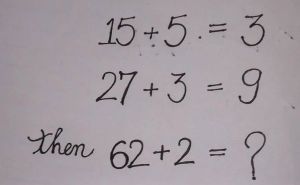 15 + 5 . = 3
27 + 3 = 9
then 62 + 2 = ?